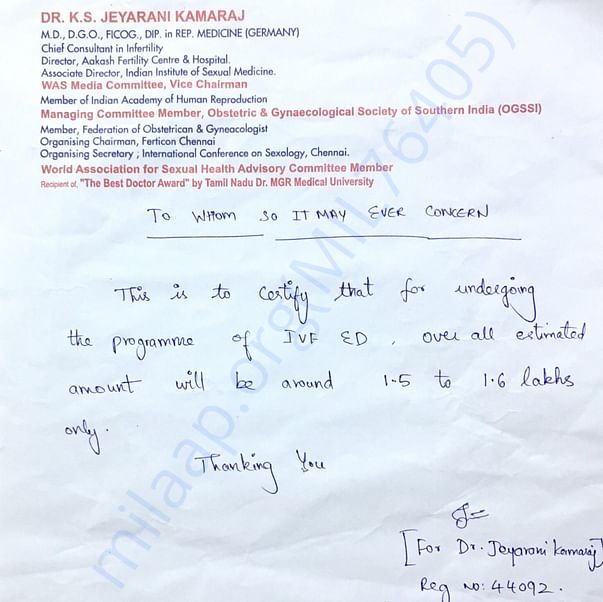 DR. K.S. JEYARANI KAMARAJ
M.D., D.G.O., FICOG., DIP. in REP. MEDICINE (GERMANY)
Chief Consultant in Infertility
Director, Aakash Fertility Centre & Hospital.
Associate Director, Indian Institute of Sexual Medicine.
WAS Media Committee, Vice Chairman
Member of Indian Academy of Human Reproduction
Managing Committee Member, Obstetric & Gynaecological Society of Southern India (OGSSI)
Member, Federation of Obstetrican & Gyneacologist
Organising Chairman, Ferticon Chennai
Organising Secretary ; International Conference on Sexology, Chennai.
World Association for Sexual Health Advisory Committee Member
Recipient of, "The Best Doctor Award" by Tamil Nadu Dr. MGR Medical University
TO WHOM SO IT MAY EVER CONCERN
This is to certify that for undergoing
the programme of IVF ED, over all estimated
amount will be around 1.5 to 1.6 lakhs
only.
Thanking You
[For Dr. Jeyarani Kamaraj]
Reg No: 44092.
milaap.org(MIL76405)